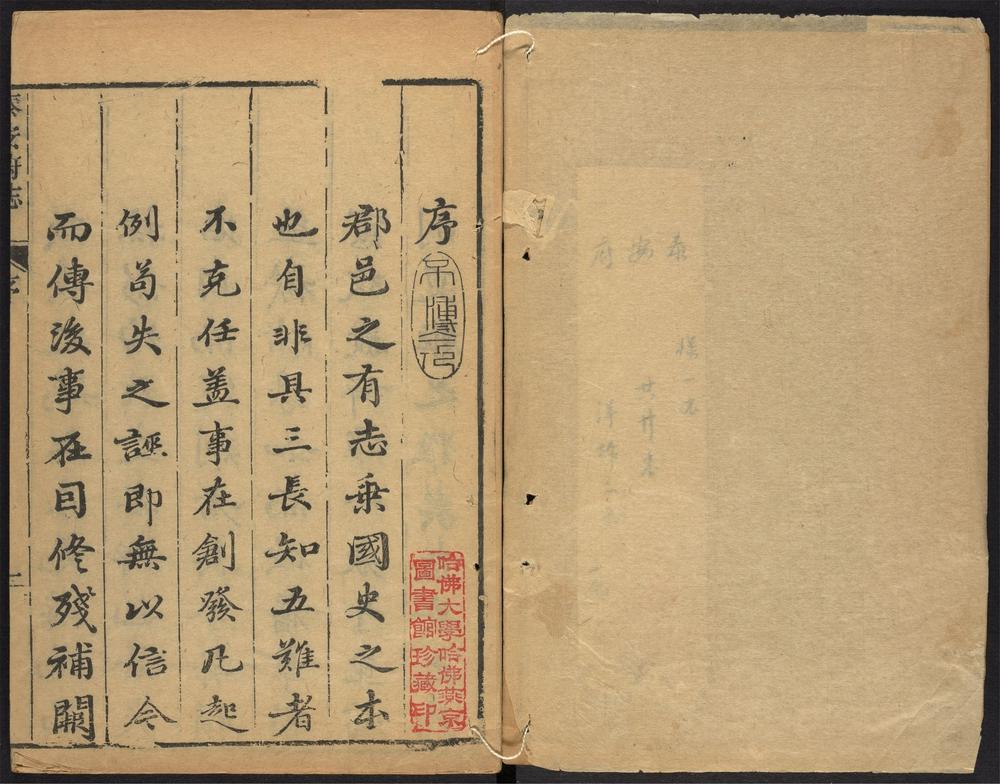 泰安府
序
郡邑之有志乗國史之本
也自非具三長知五難者
不克任葢事在創發凡起
例茍失之誣即無以信今
而傳後事在因修殘補闕
哈佛大學哈佛燕京
圖書館珍藏印
泰安府志